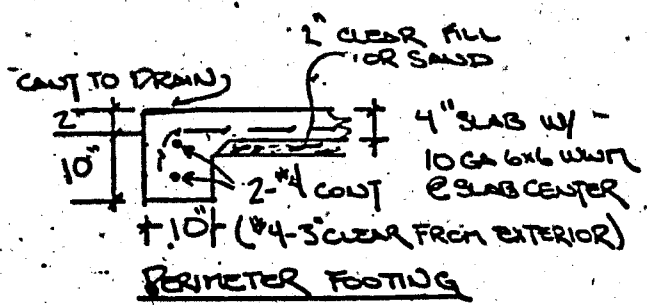 2" CLEAR FILL
OR SAND
CANT TO DRAIN
2"
10"
4" SLAB W/ -
10 GA 6x6 WWM
@ SLAB CENTER
2-#4 CONT
10" (#4-3" CLEAR FROM EXTERIOR)
PERIMETER FOOTING